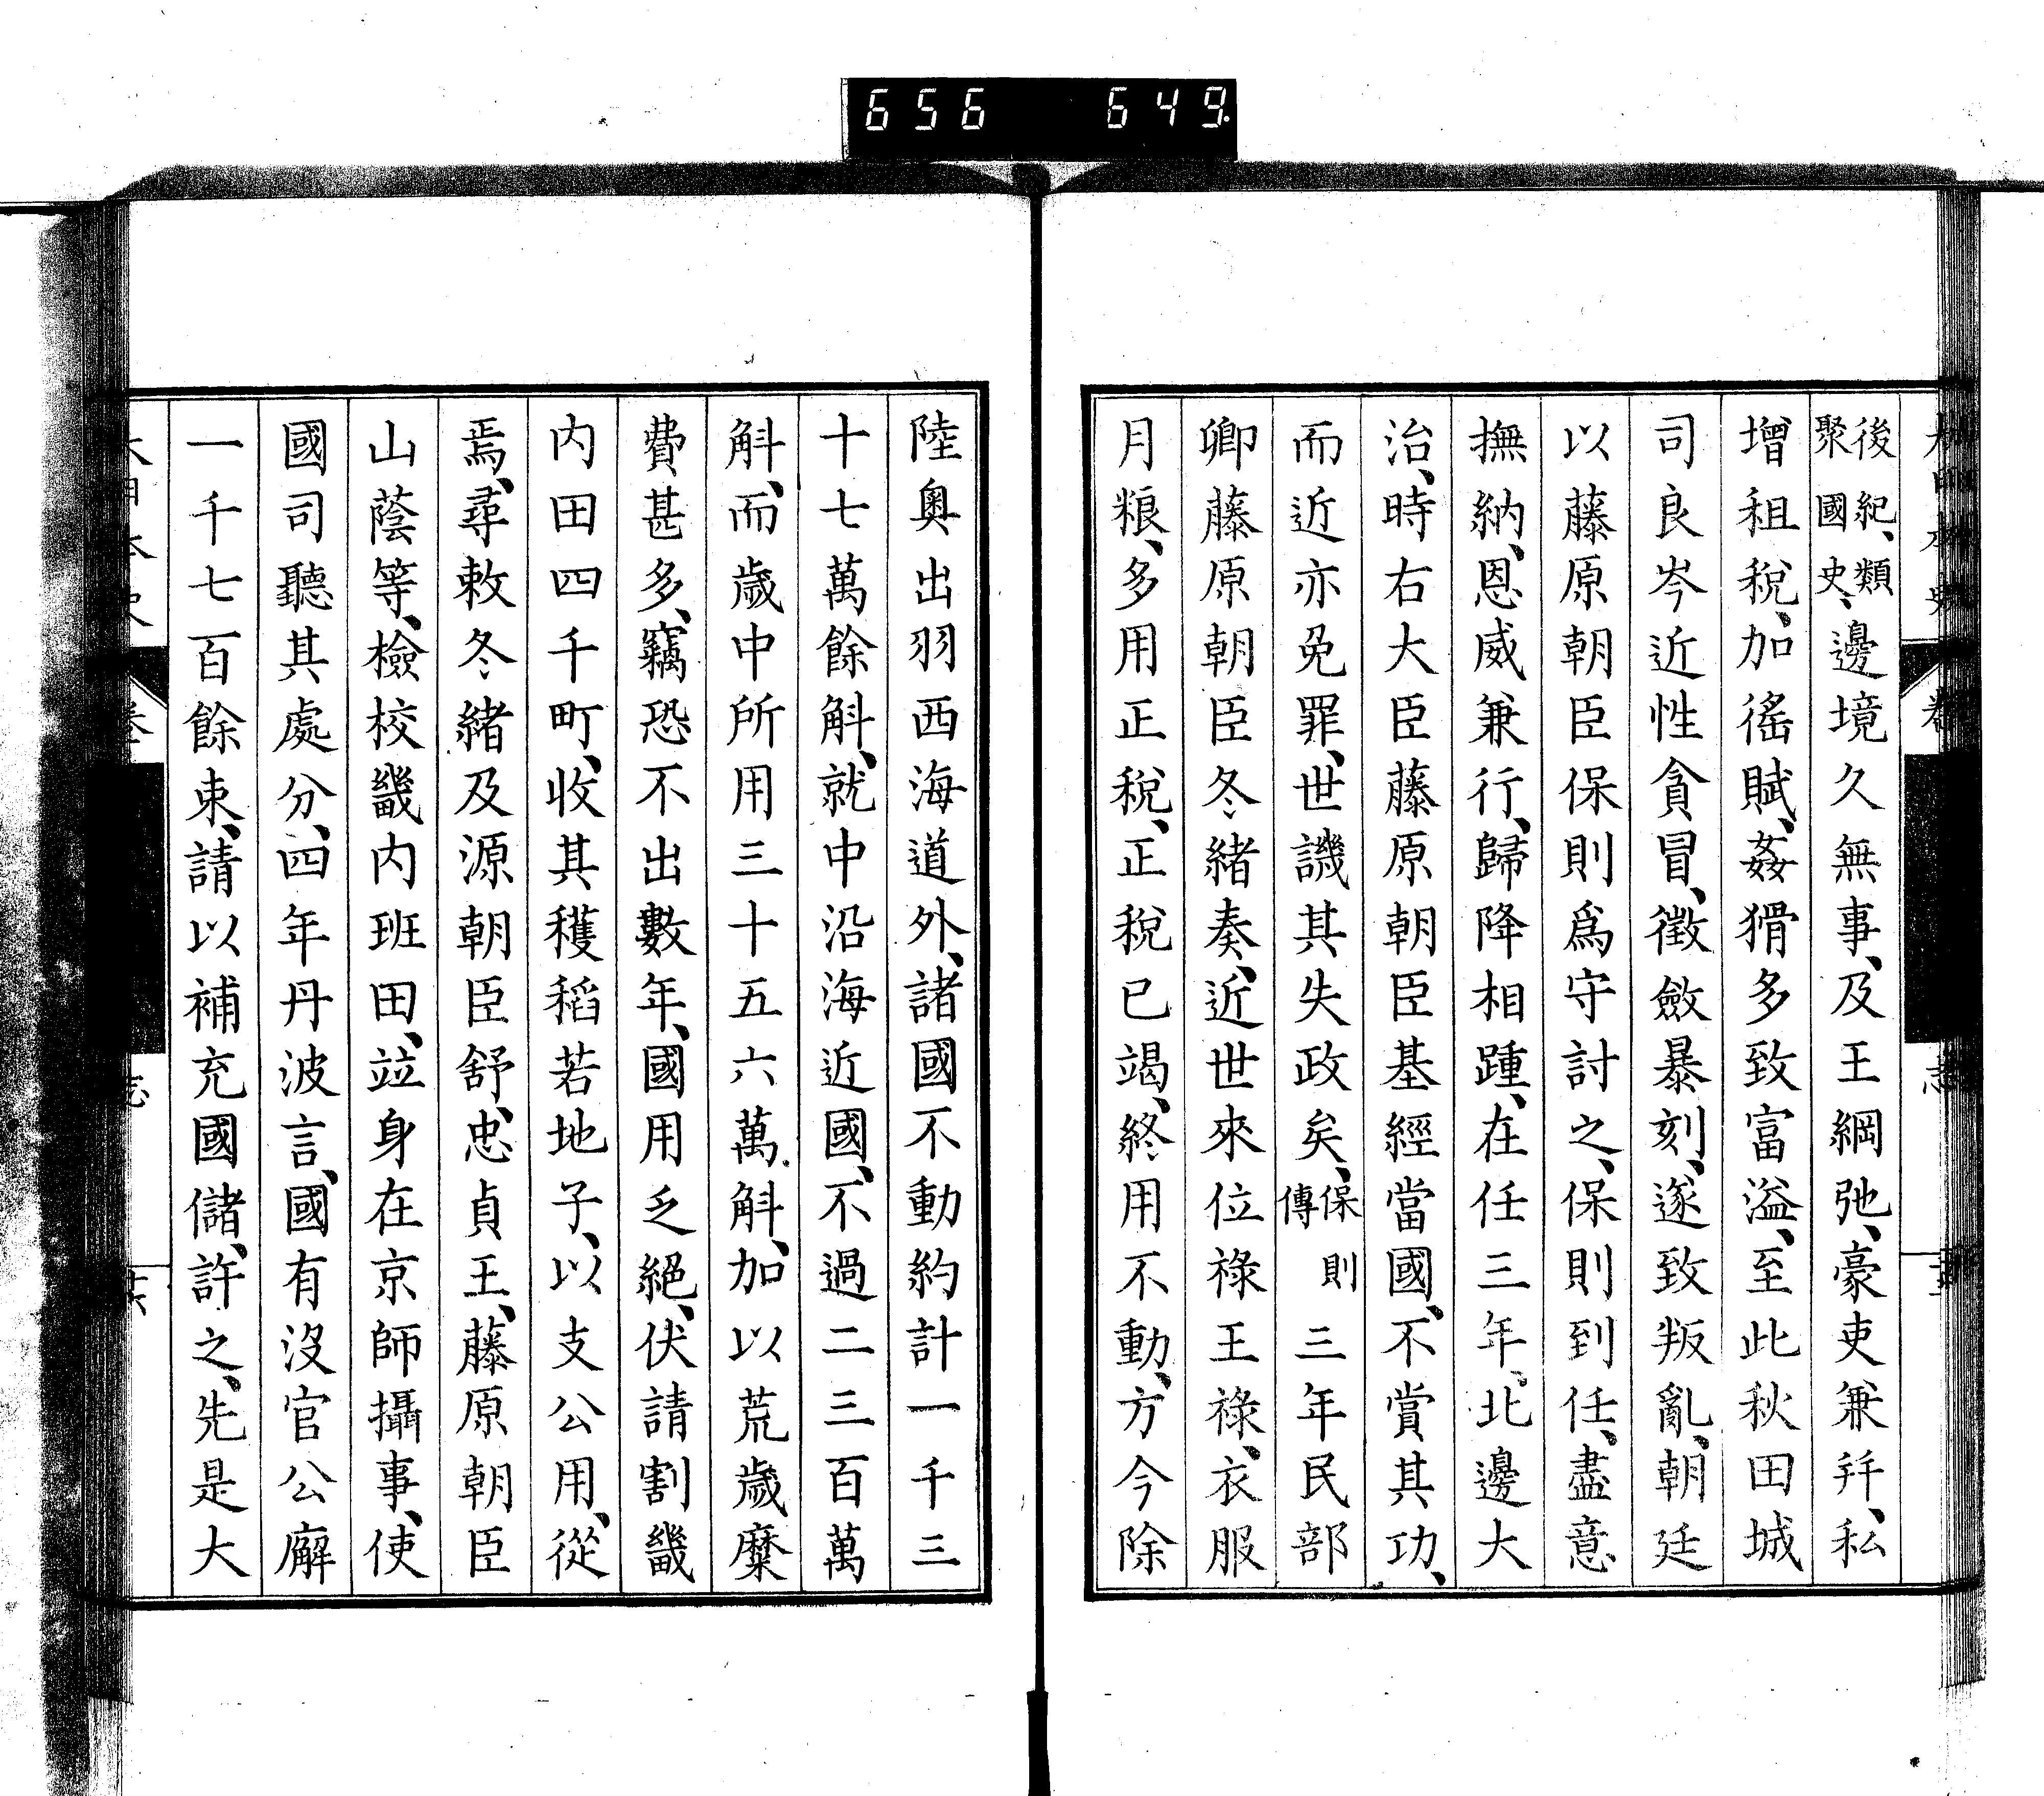 656 649
後紀、類聚國史、邊境久無事、及王綱弛、豪吏兼幷、私
增租稅、加徭賦、姦猾多致富溢、至此秋田城
司良岑近性貪冒、徵斂暴刻、遂致叛亂、朝廷
以藤原朝臣保則爲守討之、保則到任、盡意
撫納、恩威兼行、歸降相踵、在任三年、北邊大
治、時右大臣藤原朝臣基經當國、不賞其功、
而近亦免罪、世譏其失政矣、保則傳三年民部
卿藤原朝臣冬緒奏、近世來位祿王祿、衣服
月粮、多用正稅、正稅已竭、終用不動、方今除
陸奧出羽西海道外、諸國不動約計一千三
十七萬餘斛、就中沿海近國、不過二三百萬
斛、而歲中所用三十五六萬斛、加以荒歲糜
費甚多、竊恐不出數年、國用乏絕、伏請割畿
内田四千町、收其穫稻若地子、以支公用、從
焉、尋敕冬緒及源朝臣舒、忠貞王、藤原朝臣
山蔭等、檢校畿内班田、竝身在京師攝事、使
國司聽其處分、四年丹波言、國有沒官公廨
一千七百餘束、請以補充國儲、許之、先是大